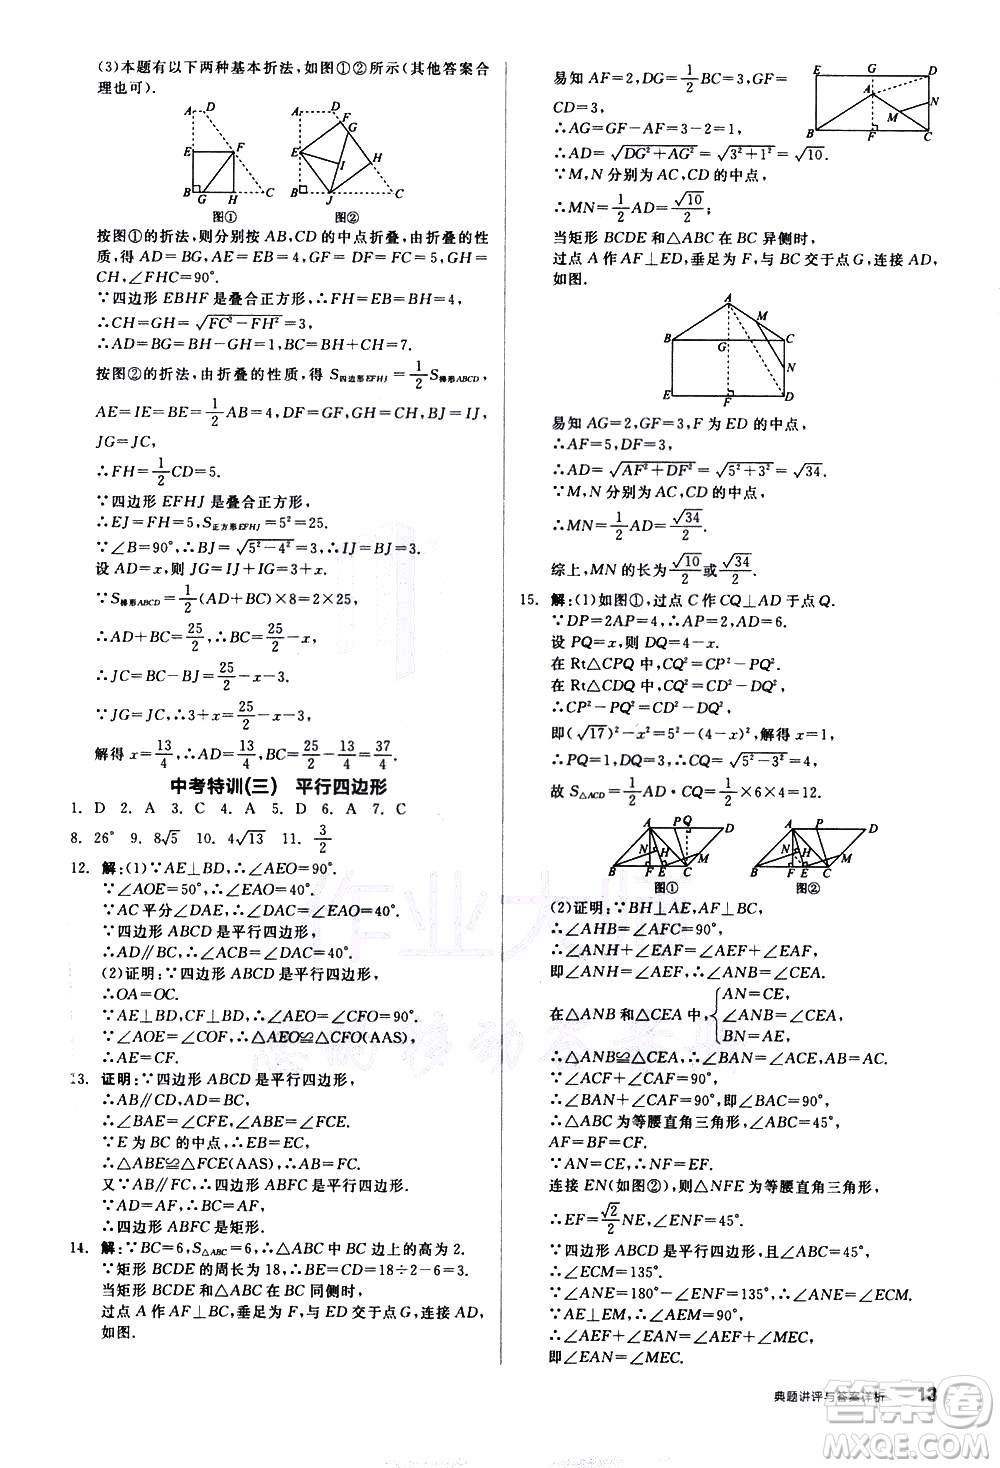 (3)本题有以下两种基本折法,如图①②所示(其他答案合
理也可).
A D
E F
B G H C
图①
A D
F G
E H
I
B J C
图②
按图①的折法,则分别按 AB,CD 的中点折叠,由折叠的性
质,得 AD=BG,AE=EB=4,GF=DF=FC=5,GH=
CH,∠FHC=90°.
∵四边形 EBHF 是叠合正方形,∴FH=EB=BH=4,
∴CH=GH=√(FC²-FH²)=3,∴BG=1,
∴AD=BG=1,BC=BH+CH=7.
按图②的折法,由折叠的性质,得 S四边形EFHJ=1/2 S梯形ABCD,
AE=IE=BE=1/2 AB=4,DF=GF,GH=CH,BJ=IJ,
JG=JC,
∴FH=1/2 CD=5.
∵四边形 EFHJ 是叠合正方形,
∴EJ=FH=5,S正方形EFHJ=5²=25.
∵∠B=90°,∴BJ=√(5²-4²)=3,∴IJ=BJ=3.
设 AD=x,则 JG=IJ+GI=3+x.
∵S梯形ABCD=1/2(AD+BC)×8=2×25,
∴AD+BC=25/2,∴BC=25/2-x,
∴JC=BC-BJ=25/2-x-3.
∵JG=JC,∴3+x=25/2-x-3,
解得 x=13/4,∴AD=13/4,BC=25/2-13/4=37/4.
中考特训(三) 平行四边形
1. D 2. A 3. C 4. A 5. D 6. A 7. C
8. 26° 9. 8√5 10. 4√13 11. 3/2
12. 解:(1)∵AE⊥BD,∴∠AEO=90°.
∵∠AOE=50°,∴∠EAO=40°.
∵AC 平分∠DAE,∴∠DAC=∠EAO=40°.
∵四边形 ABCD 是平行四边形,
∴AD∥BC,∴∠ACB=∠DAC=40°.
(2)证明:∵四边形 ABCD 是平行四边形,
∴OA=OC.
∵AE⊥BD,CF⊥BD,∴∠AEO=∠CFO=90°.
∵∠AOE=∠COF,∴△AEO≌△CFO(AAS),
∴AE=CF.
13. 证明:∵四边形 ABCD 是平行四边形,
∴AB∥CD,AD=BC,
∴∠BAE=∠CFE,∠ABE=∠FCE.
∵E 为 BC 的中点,∴EB=EC,
∴△ABE≌△FCE(AAS),∴AB=FC.
又∵AB∥FC,∴四边形 ABFC 是平行四边形.
∵AD=AF,∴BC=AF,
∴四边形 ABFC 是矩形.
14. 解:∵BC=6,S△ABC=6,∴△ABC 中 BC 边上的高为 2.
∵矩形 BCDE 的周长为 18,∴BE=CD=18÷2-6=3.
当矩形 BCDE 和△ABC 在 BC 同侧时,
过点 A 作 AF⊥BC,垂足为 F,与 ED 交于点 G,连接 AD,
如图.
易知 AF=2,DG=1/2 BC=3,GF=
CD=3,
∴AG=GF-AF=3-2=1,
∴AD=√(DG²+AG²)=√(3²+1²)=√10.
∵M,N 分别为 AC,CD 的中点,
∴MN=1/2 AD=√10/2;
E G D
A
N
M
B F C
当矩形 BCDE 和△ABC 在 BC 异侧时,
过点 A 作 AF⊥ED,垂足为 F,与 BC 交于点 G,连接 AD,
如图.
A
M
B G C
N
E F D
易知 AG=2,GF=3,F 为 ED 的中点,
∴AF=5,DF=3,
∴AD=√(AF²+DF²)=√(5²+3²)=√34.
∵M,N 分别为 AC,CD 的中点,
∴MN=1/2 AD=√34/2.
综上,MN 的长为√10/2或√34/2.
15. 解:(1)如图①,过点 C 作 CQ⊥AD 于点 Q.
∵DP=2AP=4,∴AP=2,AD=6.
设 PQ=x,则 DQ=4-x.
在 Rt△CPQ 中,CQ²=CP²-PQ²,
在 Rt△CDQ 中,CQ²=CD²-DQ²,
∴CP²-PQ²=CD²-DQ²,
即(√17)²-x²=5²-(4-x)²,解得 x=1,
∴PQ=1,∴DQ=4-x=3,∴CQ=√(5²-3²)=4,
故 S△ACD=1/2 AD·CQ=1/2×6×4=12.
A P Q D
N H M
B F E C
图①
A P D
N H M
B F E C
图②
(2)证明:∵BH⊥AE,AF⊥BC,
∴∠AHB=∠AFC=90°,
∴∠ANH+∠EAF=∠AEF+∠EAF,
即∠ANH=∠AEF,∴∠ANB=∠CEA.
在△ANB 和△CEA 中,{AN=CE,
∠ANB=∠CEA,
BN=AE,
∴△ANB≌△CEA,∴∠ABN=∠CAE,AB=AC,
∴∠BAH+∠CAF=90°,即∠BAC=90°,
∴△ABC 为等腰直角三角形,∴∠ABC=45°,
AF=BF=CF.
∵AN=CE,∴NF=EF.
连接 EN(如图②),则△NFE 为等腰直角三角形,
∴EF=√2/2 NE,∠FNE=45°.
∵四边形 ABCD 为平行四边形,∠ABC=45°,
∴∠ECM=135°.
∵∠ANE=180°-∠FNE=135°,∴∠ANE=∠ECM.
∵AE⊥EM,∴∠AEM=90°,
∴∠AEF+∠EAN=∠AEF+∠MEC,
即∠EAN=∠MEC.
典题讲评与答案详析 13
作业大师
答案圈
MXQE.COM